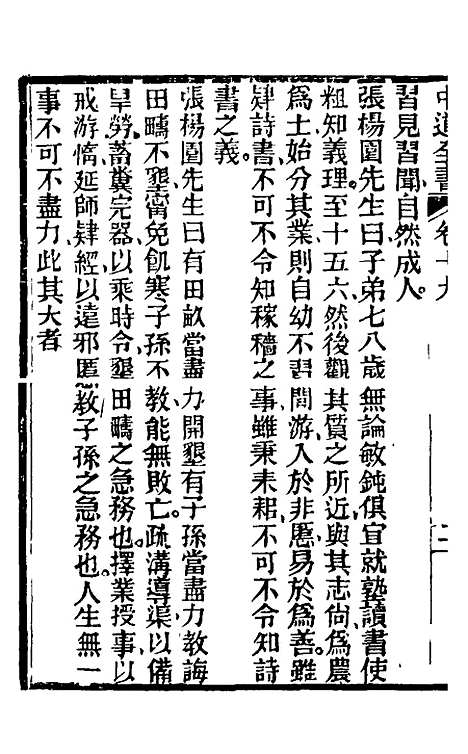 中道全書 卷十九 二
習見習聞自然成人。
張楊園先生曰子弟七八歲無論敏鈍俱宜就塾讀書使
粗知義理至十五六然後觀其質之所近與其志尚爲農
爲士始分其業則自幼不習閒游入於非慝易於爲善雖
肄詩書不可不令知稼穡之事雖秉耒耜不可不令知詩
書之義。
張楊園先生曰有田畝當盡力開墾有子孫當盡力教誨
田疇不墾甯免飢寒子孫不教能無敗亡。疏溝導渠以備
旱勞蓄糞完器以乘時令墾田疇之急務也。擇業授事以
戒游惰延師肄經以遠邪匿教子孫之急務也。人生無一
事不可不盡力此其大者